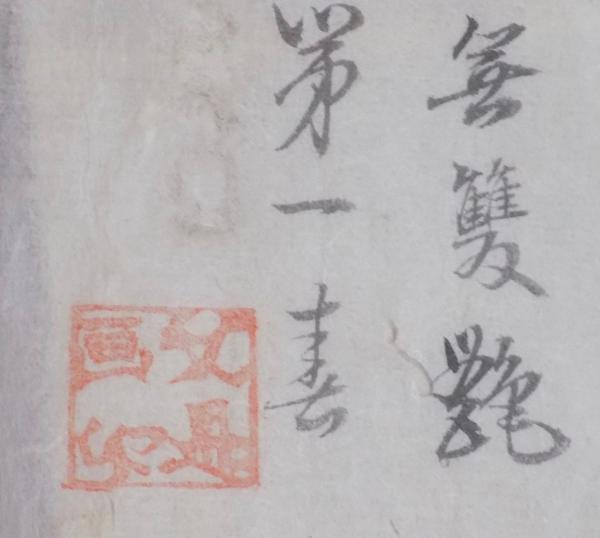 無雙艷
第一春